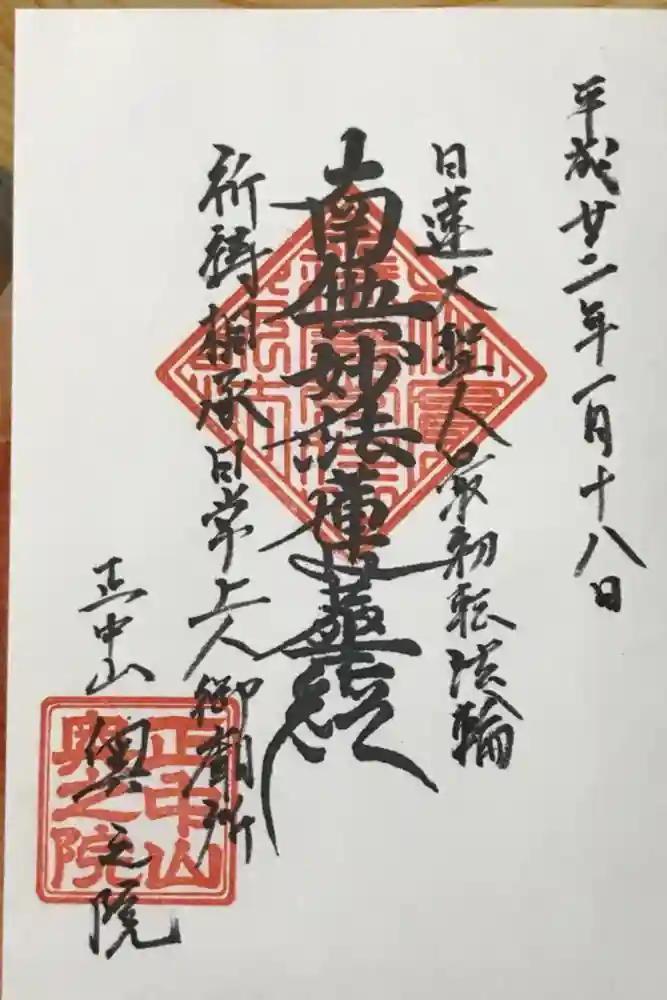 平成廿二年一月十八日
日蓮大聖人最初転法輪
南無妙法蓮華経
祈祷相承日常上人御廟所
正中山 奥之院
正中山
奥之院